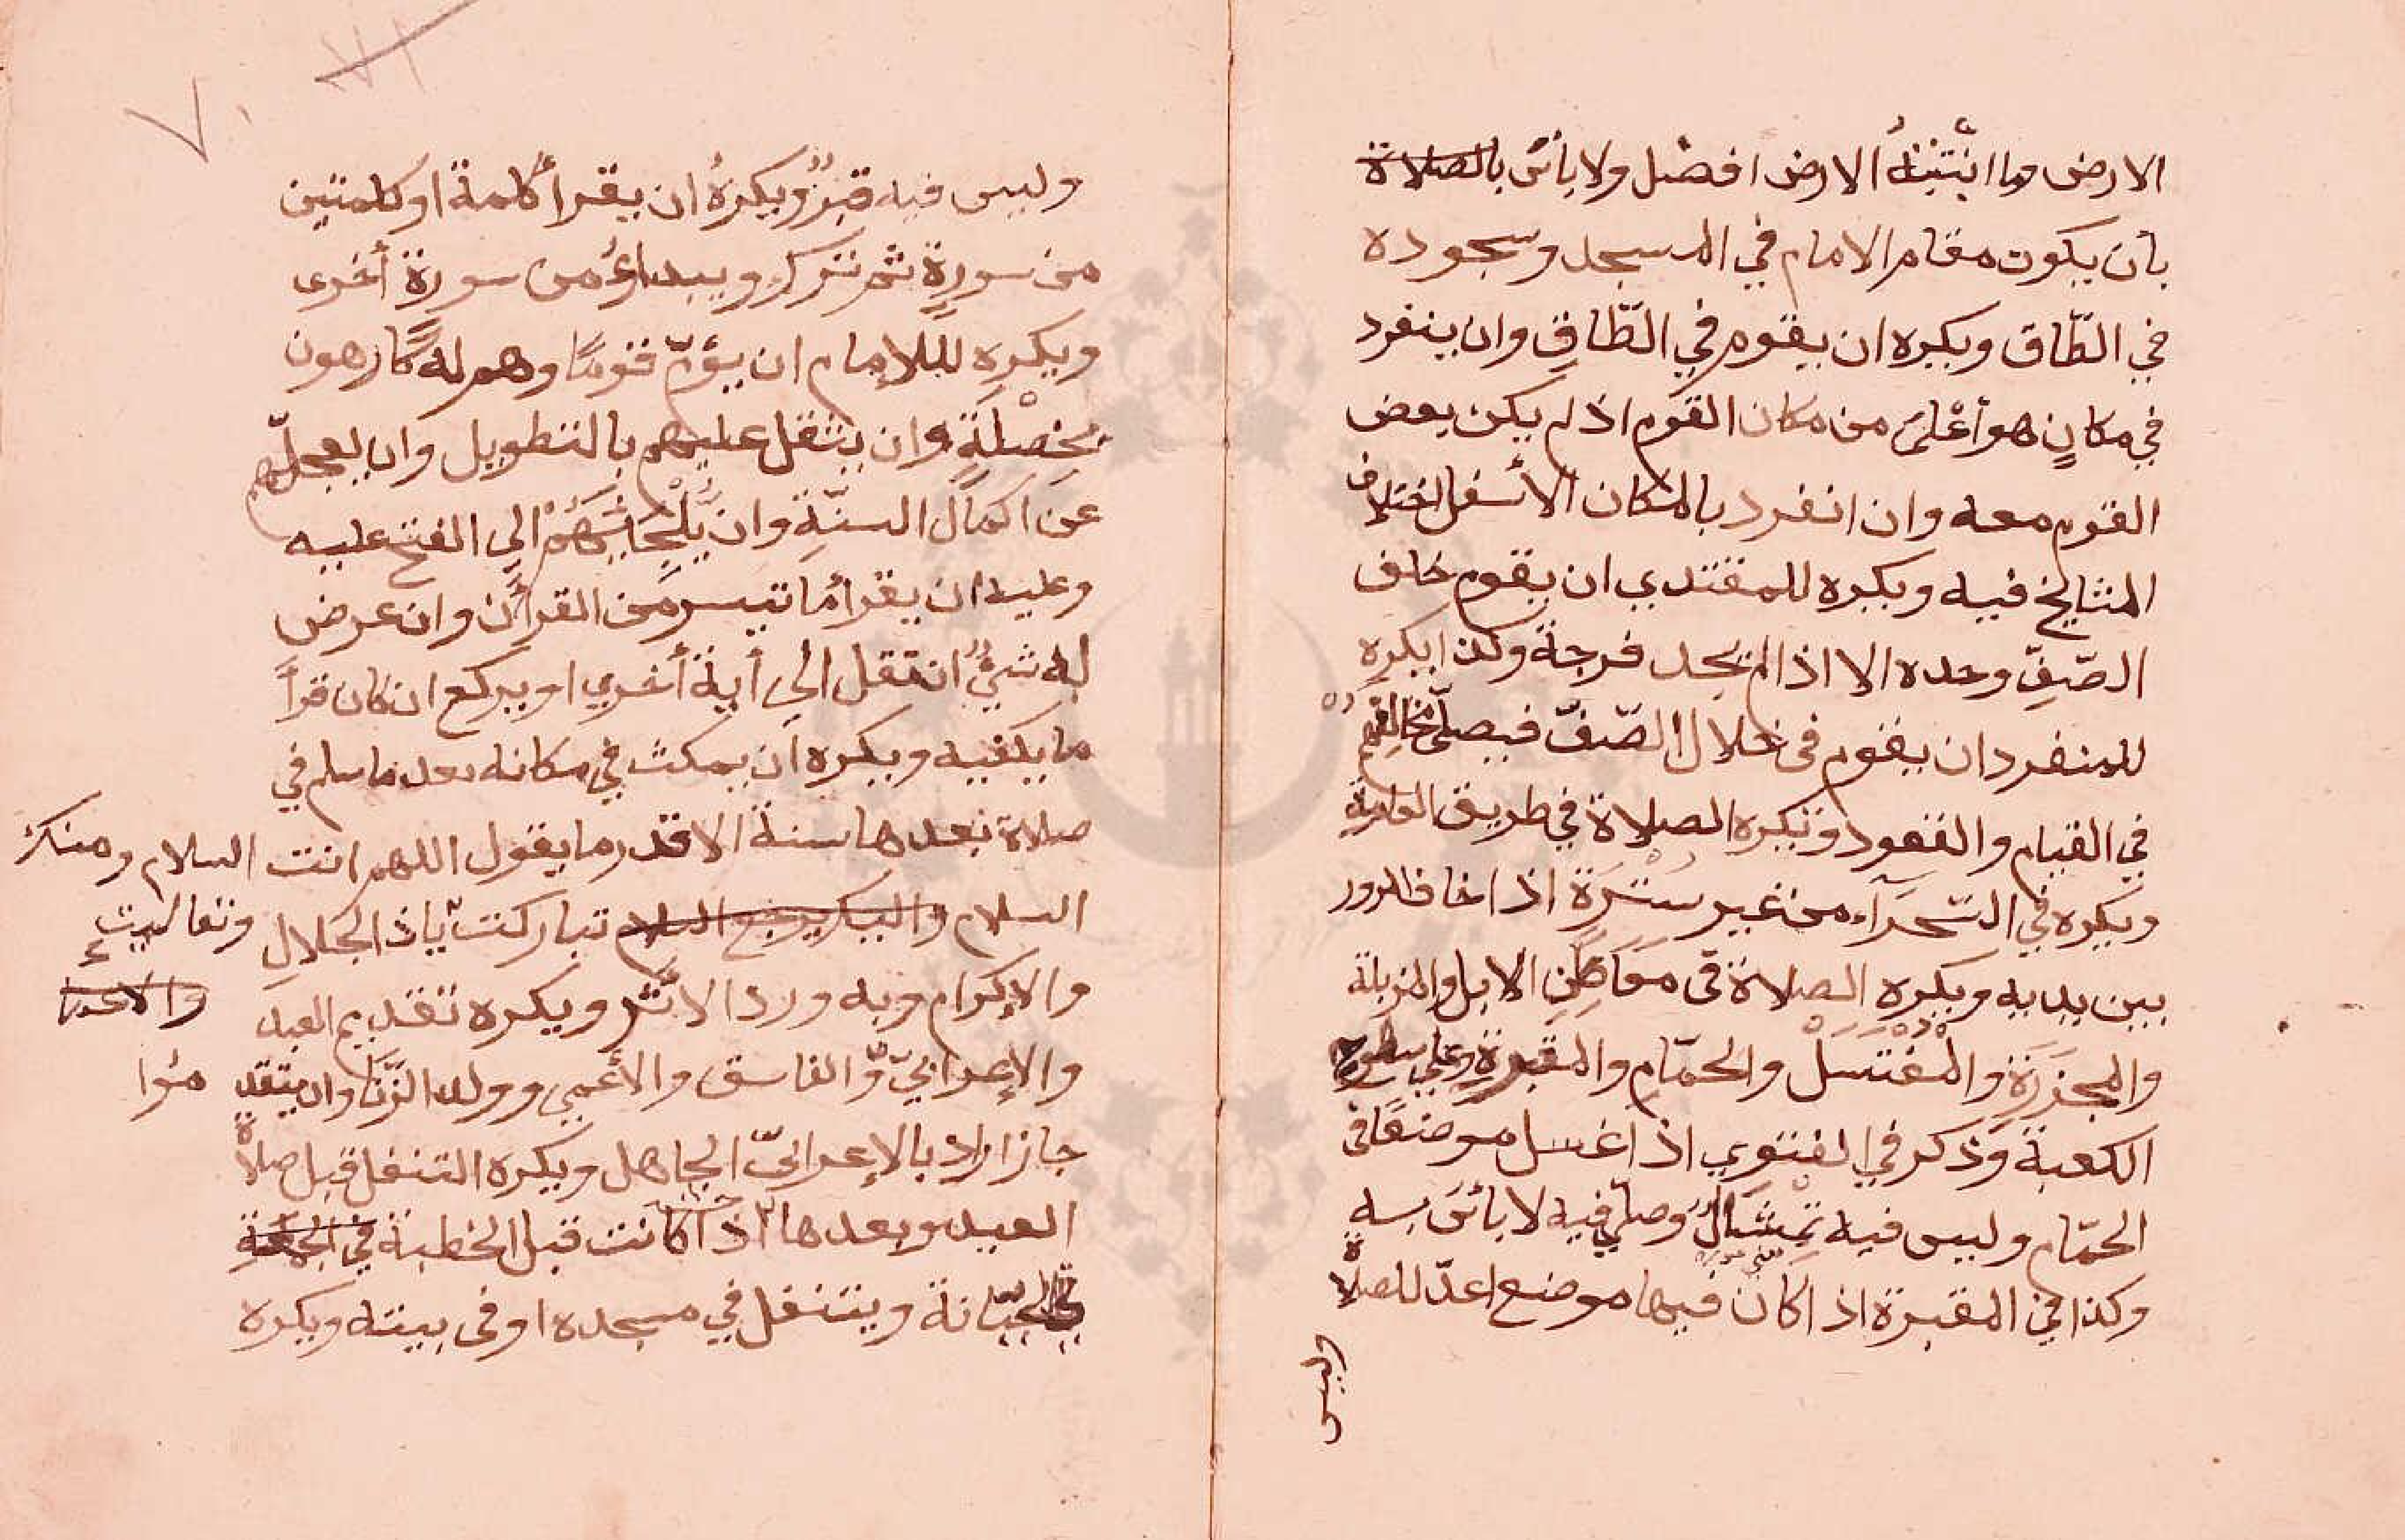 الارض وما انبتته الارض افضل ولا بأس بالصلاة
بان يكون مقام الامام في المسجد وسجوده
في الطّاق ويكره ان يقوم في الطّاقِ وان ينفرد
في مكانٍ هو أعْلىَ من مكان القوم اذ لم يكن بعض
القوم معه وان انفرد بالمكان الأسفل اختلاف
المشايخ فيه ويكره للمقتدي ان يقوم خلف
الصّفِّ وحده الا اذا لم يجد فرجة وكذا يكره
للمنفرد ان يقوم في خلال الصّفّ فيصلّي مخالفهم
في القيام والقعود وتكره الصلاة في طريق العامة
ويكره في الصحرَآء من غير سُتْرَة اذا خاف المرور
بين يديه ويكره الصلاة في معَاطِنِ الابل والمزبلة
والمجزَرَةِ والمغْتسَل والحمّام والمقبرةِ وعلي سطوح
الكعبة وذكر في الفتوي اذا غسل موضعًا في
الحمّام وليس فيه تمْثَالٌ وصلّي فيه لا بأسَ به
وكذا في المقبرة اذا كان فيها موضع اعدّ للصلاة
وليس
٧٠
وليس فيه قبرٌ ويكرهُ ان يقرأ كلمةً او كلمتين
من سورةٍ ثم تترك ويبداؤ من سورة أخرى
ويكره للإمام ان يؤمّ قومًا وهم له كارهون
بخصْلَةٍ وان يثقل عليهم بالتطويل وان يعجلّهم
عن اكمال السنّةِ وان يُلْجَئَهُمْ الي الفتح عليه
وعليه ان يقرأ ما تيسر من القرأن وان عرض
له شيءٌ انتقل الي أية أخري او يركع ان كان قرأ
ما يكفيه ويكره ان يمكث في مكانه بعد ما سلم في
صلاة بعدها سنة الا قدر ما يقول اللهم انت السلام ومنك
السلام واليك يرجع السلام تباركت يا ذا الجلال وتعاليت
والإكرام وبه ورد الأثر ويكره تقديم العبد
والإعرابيّ والفاسق والأعمي وولد الزّنَا وان يتقد موا
جاز اراد بالإعرابيّ الجاهل ويكره التنفل قبل صلاة
العيد وبعدها اذا كانت قبل الخطبة في الجمعة
في الجبّانة ويتنفل في مسجده او في بيته ويكره